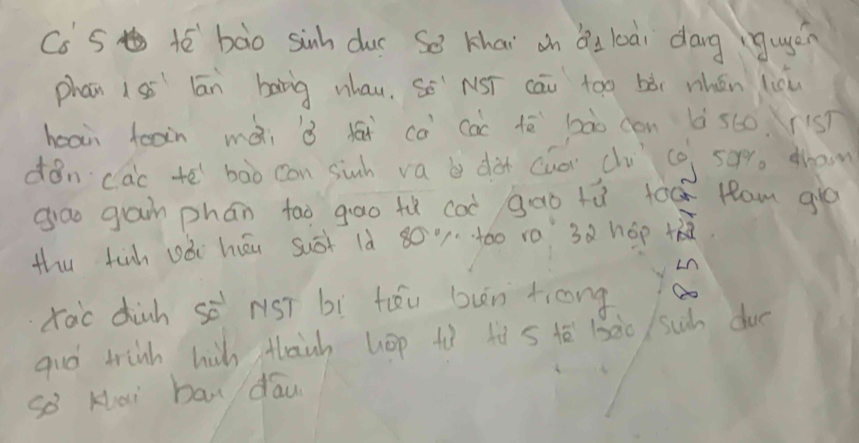 Có 5 tế bào sinh dục sơ khai ở 1 loài đang nguyên
phân 1 số lần bằng nhau. Số NST cấu tạo bởi nhân liệu
hoàn toàn mới, ở tất cả các tế bào con là 560. NST
đơn các tế bào con sinh ra ở đợt cuối chỉ có 50% tham
giao giảm phân tạo giao tử các giao tử tạo tham gia
thụ tinh với hiệu suất là 80% tạo ra 32 hợp tử.
Xác định số NST bị tiêu biến trong
quá trình hình thành hợp tử từ 5 tế bào sinh dục
sơ khai ban đầu